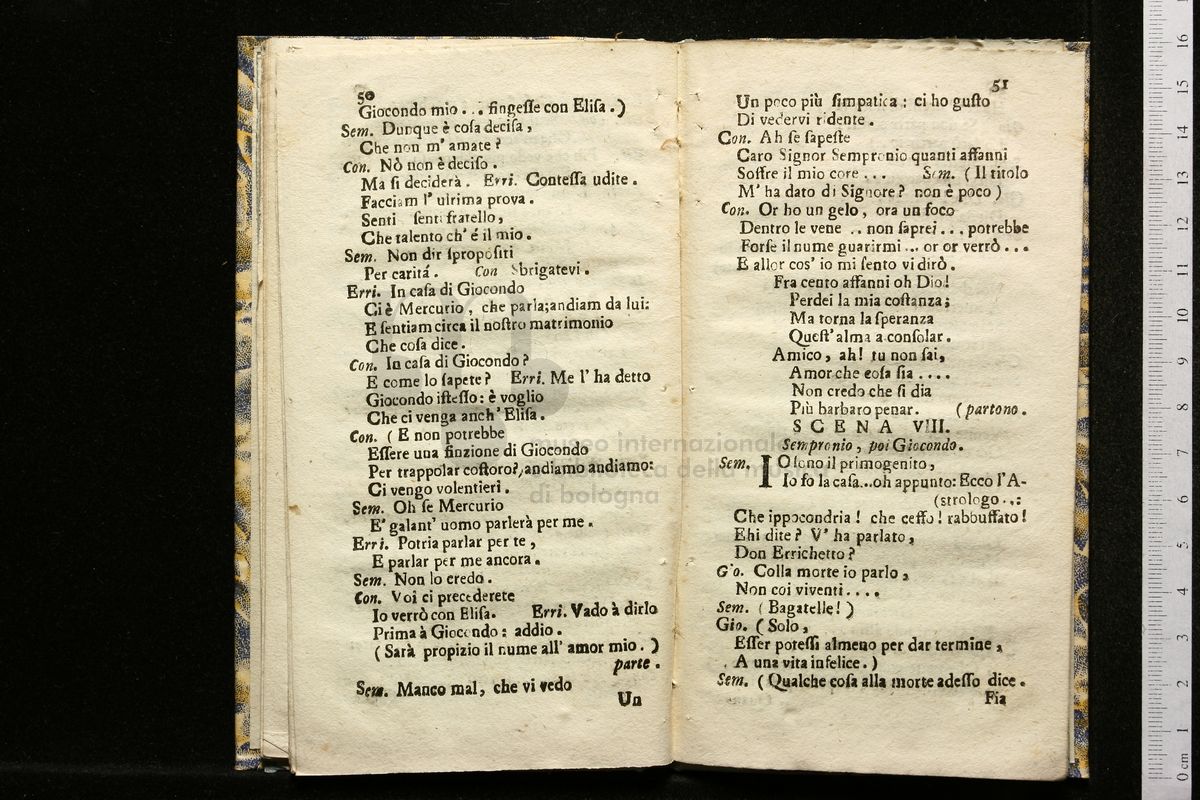 50
Giocondo mio... fingeſſe con Eliſa.)
Sem. Dunque è coſa deciſa,
Che non m' amate?
Con. Nò non è deciſo.
Ma ſi deciderà. Erri. Conteſſa udite.
Facciam l' ultima prova.
Senti ſenti fratello,
Che talento ch' é il mio.
Sem. Non dir ſpropoſiti
Per caritá. Con Sbrigatevi.
Erri. In caſa di Giocondo
Ci è Mercurio, che parla;andiam da lui:
E ſentiam circa il noſtro matrimonio
Che coſa dice.
Con. In caſa di Giocondo?
E come lo ſapete? Erri. Me l' ha detto
Giocondo iſteſſo: è voglio
Che ci venga anch' Eliſa.
Con. (E non potrebbe
Eſſere una finzione di Giocondo
Per trappolar coſtoro?,andiamo andiamo:
Ci vengo volentieri.
Sem. Oh ſe Mercurio
E' galant' uomo parlerà per me.
Erri. Potria parlar per te,
E parlar per me ancora.
Sem. Non lo credo.
Con. Voi ci precederete
Io verrò con Eliſa. Erri. Vado à dirlo
Prima à Giocondo: addio.
(Sarà propizio il nume all' amor mio.)
parte.
Sem. Manco mal, che vi vedo
Un
51
Un poco più ſimpatica; ci ho guſto
Di vedervi ridente.
Con. Ah ſe ſapeſte
Caro Signor Sempronio quanti affanni
Soffre il mio core... Sem. (Il titolo
M' ha dato di Signore? non è poco)
Con. Or ho un gelo, ora un foco
Dentro le vene .. non ſaprei... potrebbe
Forſe il nume guarirmi... or or verrò...
E allor cos' io mi ſento vi dirò.
Fra cento affanni oh Dio!
Perdei la mia coſtanza;
Ma torna la ſperanza
Queſt' alma a conſolar.
Amico, ah! tu non ſai,
Amor che coſa ſia....
Non credo che ſi dia
Più barbaro penar. (partono.
SCENA VIII.
Sempronio, poi Giocondo.
Sem. IO ſono il primogenito,
Io fo la caſa...oh appunto: Ecco l'A-
(strologo..:
Che ippocondria! che ceffo! rabbuffato!
Ehi dite? V' ha parlato,
Don Errichetto?
Gio. Colla morte io parlo,
Non coi viventi....
Sem. (Bagatelle!)
Gio. (Solo,
Eſſer poteſſi almeno per dar termine,
A una vita infelice.)
Sem. (Qualche coſa alla morte adeſſo dice.
Fia
museo internazionale
e biblioteca della musica
di bologna
0 cm 1 2 3 4 5 6 7 8 9 10 11 12 13 14 15 16